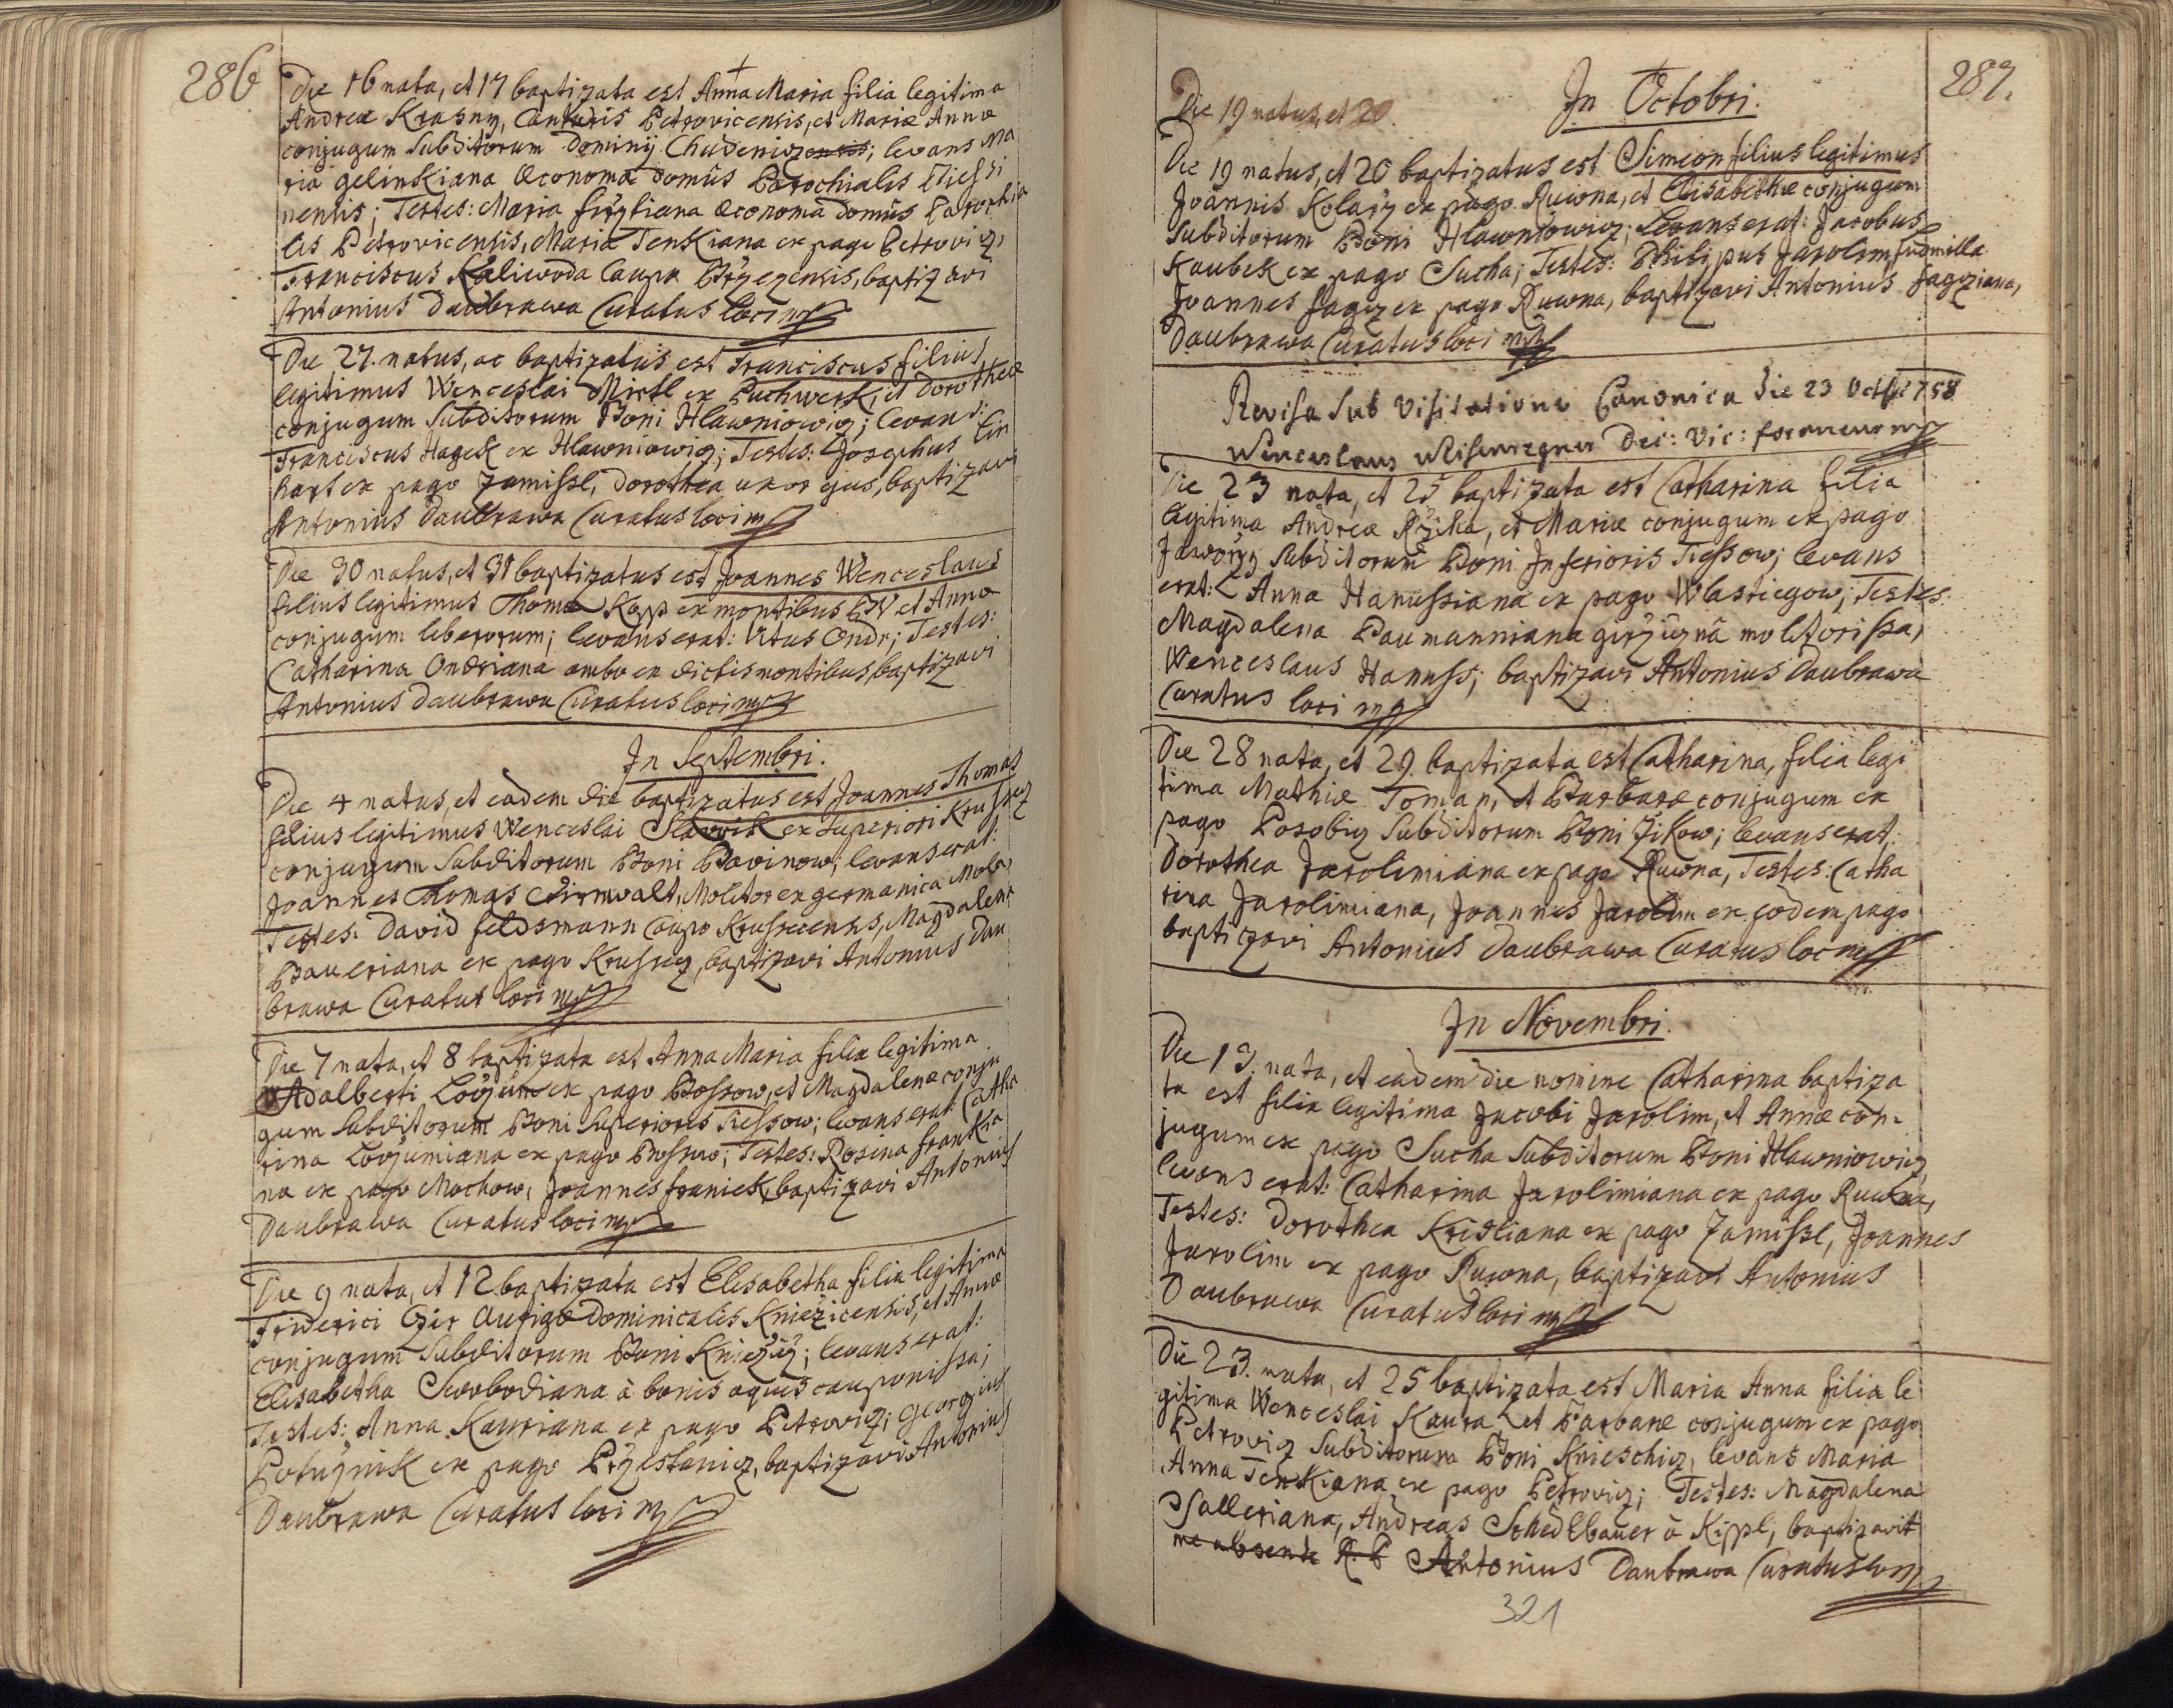 286
Die 16 nata, et 17 baptizata est Anna Maria filia legitima
Andreæ Krasny, Cantoris Petrovicensis, et Mariæ Annæ
conjugum Subditorum Dominij Chudenizensis; levans Ma
ria Gelinkiana Œconoma domûs Parochialis
nensis; Testes: Maria Œconoma domûs Parochia
lis Petrovicensis, Maria Tenkiana ex pago Petroviz,
Franciscus Kaliwoda Caupo baptizavi
Antonius Daubrawa Curatus loci mp
Die 27. natus, ac baptizatus est Franciscus filius
legitimus Wenceslai Mirtl ex Puchwerk, et Dorotheæ
conjugum Subditorum Boni Hlawniowiz; levans:
Franciscus Hagek ex Hlawniowiz; Testes: Josephus Lin
hart ex pago Zamissl, Dorothea uxor ejus, baptizavi
Antonius Daubrawa Curatus loci mp
Die 30 natus, et 31 baptizatus est Joannes Wenceslaus
filius legitimus Thomæ Kopp ex montibus et Anna
conjugum liberorum; levans erat: Vitus Ondr; Testes:
Catharina Ondriana ambo ex dictis montibus, baptizavi
Antonius Daubrawa Curatus loci mp
In Septembri.
Die 4 natus, et eadem die baptizatus est Joannes Thomas
filius legitimus Wenceslai Slavvik ex Superiori
conjugum Subditorum Boni levans erat:
Joannes Thomas Molitor ex germanica Mola,
Testes: David Feldsmann Caupo Magdalena
Baueriana ex pago baptizavi Antonius Dau
brawa Curatus loci mp
Die 7 nata, et 8 baptizata est Anna Maria filia legitima
Adalberti ex pago Bossow, et Magdalenæ conju
gum Subditorum Boni Superioris Tiessow; levans erat: Catha
rina ex pago Testes: Rosina Frankia
na ex pago Mochow, Joannes Franiek, baptizavi Antonius
Daubrawa Curatus loci mp
Die 9 nata, et 12 baptizata est Elisabetha filia legitima
Friderici Aurigæ Dominicalis Kniezicensis, et Annæ
conjugum Subditorum Boni levans erat:
Elisabetha Swobodiana à bonis aquis cauponissa;
Testes: Anna Kauriana ex pago Petroviz; Georgius
ex pago baptizavi Antonius
Daubrawa Curatus loci mp
287.
Die 19 natus, et 20
In Octobri.
Die 19 natus, et 20 baptizatus est Simeon filius legitimus
Joannis Kolarz ex pago Ruwna, et Elisabethæ conjugum
Subditorum Boni Hlawniowiz; Levans erat: Jacobus
Kaubek ex pago Sucha; Testes: Philippus Jarolim, Ludmilla
Joannes Jagz ex pago Ruwna, baptizavi Antonius Jagziana,
Daubrawa Curatus loci mp
Revisa Sub Visitatione Canonica die 23 Octb 1758
Wenceslaus Dec: Vic: foraneus mp
Die 23 nata, et 25 baptizata est Catharina filia
legitima Andreæ Rziha, et Mariæ conjugum ex pago
Subditorum Boni Inferioris Tiessow; levans
erat: Anna Hanussiana ex pago Wlastiegow; Testes:
Magdalena Baumanniana molitorissa,
Wenceslaus Hanuss; baptizavi Antonius Daubrawa
Curatus loci mp
Die 28 nata, et 29 baptizata est Catharina, filia legi
tima Mathiæ Toman, et Barbaræ conjugum ex
pago Posobiz Subditorum Boni Zikow; levans erat:
Dorothea Jarolimiana ex pago Ruwna, Testes: Catha
rina Jarolimiana, Joannes Jarolim ex eodem pago
baptizavi Antonius Daubrawa Curatus loci mp
In Novembri.
Die 13. nata, et eadem die nomine Catharina baptiza
ta est filia legitima Jacobi Jarolim, et Annæ con-
jugum ex pago Sucha Subditorum Boni Hlawniowiz
levans erat: Catharina Jarolimiana ex pago Ruwna,
Testes: Dorothea Kristiana ex pago Zamissl, Joannes
Jarolim ex pago Ruwna, baptizavi Antonius
Daubrawa Curatus loci mp
Die 23. nata, et 25 baptizata est Maria Anna filia le
gitima Wenceslai Kaura et Barbaræ conjugum ex pago
Petroviz Subditorum Boni Knieschiz, levans Maria
Anna Tenkiana ex pago Petroviz; Testes: Magdalena
Salleriana, Andreas Schedlbauer à Kippl, baptizavit
me absente R. P Antonius Daubrawa Curatus loci mp
321